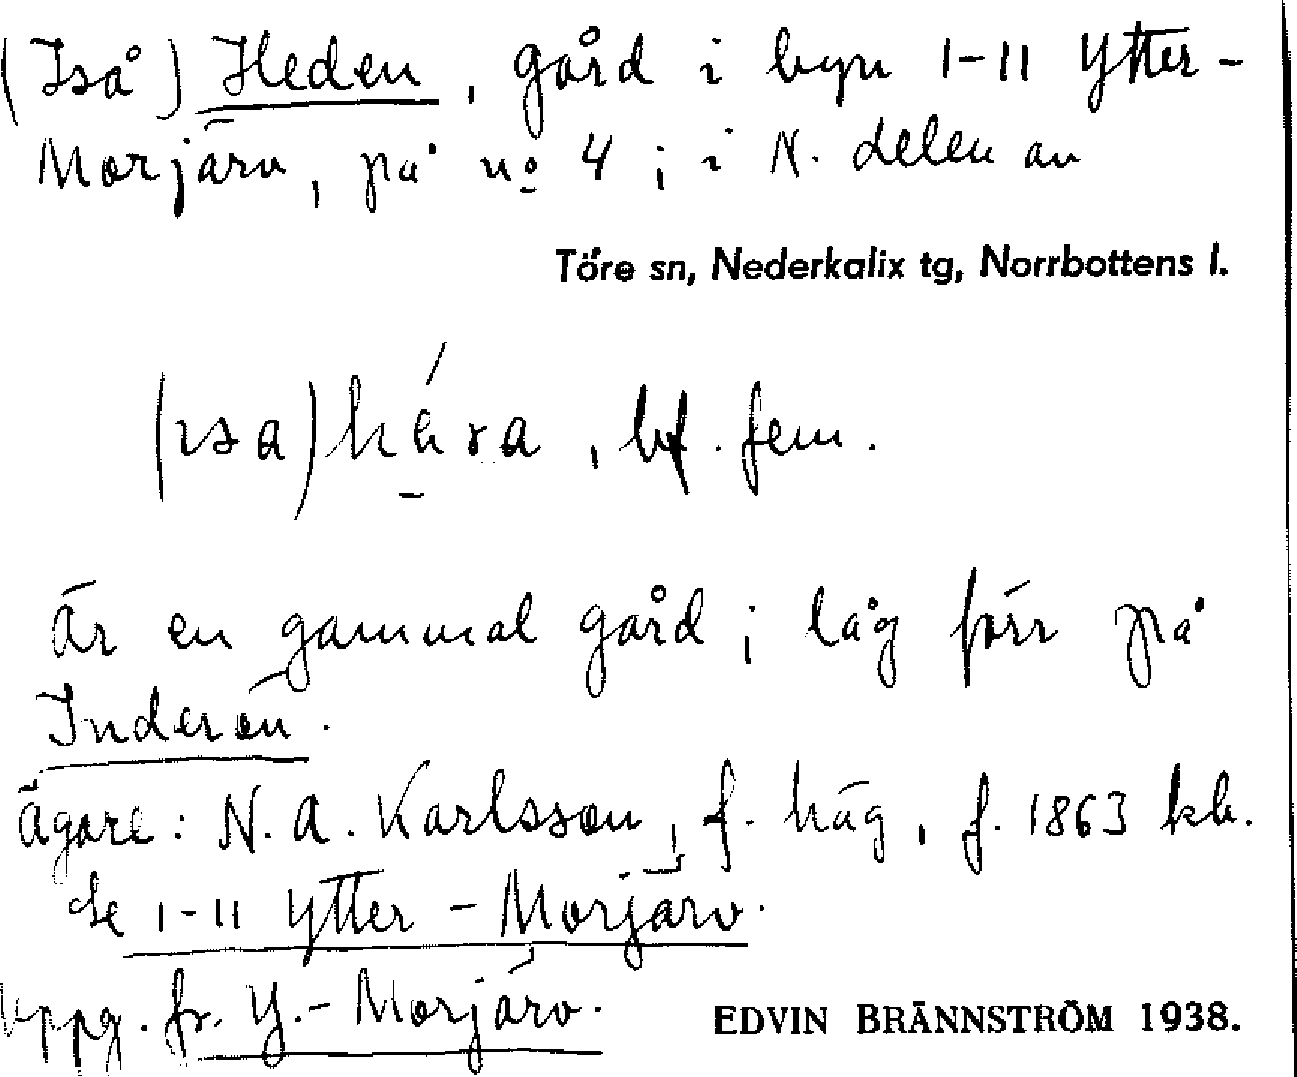 (Iså) Heden, gård i byn 1-11 Ytter-
Morjärv, på no 4; i N. delen av
Töre sn, Nederkalix tg, Norrbottens l.
bf. fem.
är en gammal gård; låg förr på
Inderön.
ägare: N. A. Karlsson, f. häg, f. 1863 kh.
Se 1-11 Ytter-Morjärv.
Uppg. fr. Y.-Morjärv.
EDVIN BRÄNNSTRÖM 1938.